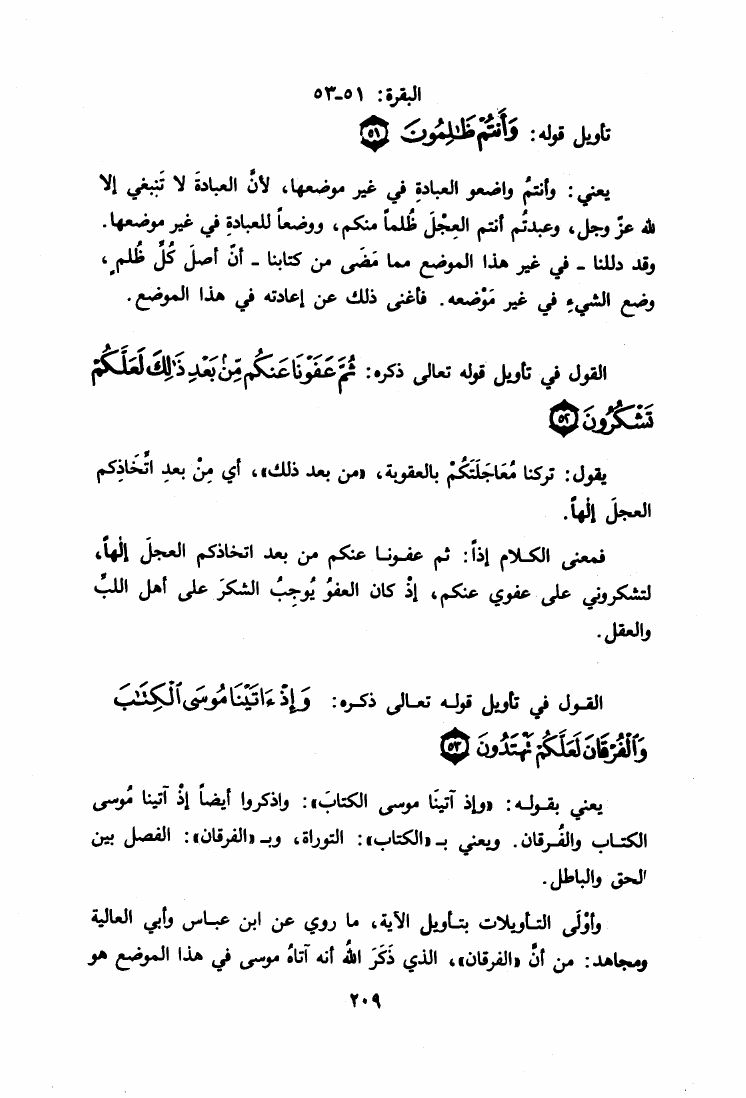 البقرة: ٥١-٥٣
تأويل قوله: وَأَنتُمْ ظَٰلِمُونَ ٥١
يعني: وأنتمُ واضعو العبادةِ في غير موضعها، لأنَّ العبادةَ لا تَنبغي إلا
لله عزّ وجل، وعبدتُم أنتم العِجْلَ ظُلماً منكم، ووضعاً للعبادةِ في غير موضعها.
وقد دللنا - في غير هذا الموضع مما مَضَى من كتابنا - أنّ أصلَ كُلِّ ظُلمٍ،
وضع الشيءِ في غير مَوْضعه. فأغنى ذلك عن إعادته في هذا الموضع.
القول في تأويل قوله تعالى ذكره: ثُمَّ عَفَوْنَا عَنكُم مِّنۢ بَعْدِ ذَٰلِكَ لَعَلَّكُمْ
تَشْكُرُونَ ٥٢
يقول: تركنا مُعَاجَلَتَكُمْ بالعقوبة، «من بعد ذلك»، أي مِنْ بعدِ اتِّخَاذِكم
العجلَ إلٰهاً.
فمعنى الكلام إذاً: ثم عفونا عنكم من بعد اتخاذكم العجلَ إلٰهاً،
لتشكروني على عفوي عنكم، إذْ كان العفوُ يُوجِبُ الشكرَ على أهل اللبِّ
والعقل.
القول في تأويل قوله تعالى ذكره: وَإِذْ ءَاتَيْنَا مُوسَى ٱلْكِتَٰبَ
وَٱلْفُرْقَانَ لَعَلَّكُمْ تَهْتَدُونَ ٥٣
يعني بقوله: «وإذ آتينَا موسى الكتابَ»: واذكروا أيضاً إذْ آتينا مُوسى
الكتاب والفُرقان. ويعني بـ «الكتاب»: التوراة، وبـ «الفرقان»: الفصل بين
الحق والباطل.
وأوْلَى التأويلات بتأويل الآية، ما روي عن ابن عباس وأبي العالية
ومجاهد: من أنَّ «الفرقان»، الذي ذَكَرَ اللهُ أنه آتاهُ موسى في هذا الموضع هو
٢٠٩